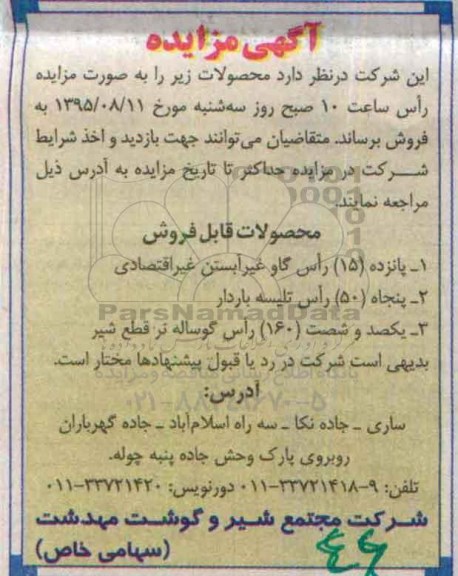 آگهی مزایده
این شرکت درنظر دارد محصولات زیر را به صورت مزایده
رأس ساعت ۱۰ صبح روز سه‌شنبه مورخ ۱۳۹۵/۰۸/۱۱ به
فروش برساند. متقاضیان می‌توانند جهت بازدید و اخذ شرایط
شرکت در مزایده حداکثر تا تاریخ مزایده به آدرس ذیل
مراجعه نمایند.
محصولات قابل فروش
۱ـ پانزده (۱۵) رأس گاو غیرآبستن غیراقتصادی
۲ـ پنجاه (۵۰) رأس تلیسه باردار
ParsNamadData
۳ـ یکصد و شصت (۱۶۰) رأس گوساله نر قطع شیر
بدیهی است شرکت در رد یا قبول پیشنهادها مختار است.
آدرس:
۰۲۱-۸۸۳۴۹۶۷۰-۵
ساری ـ جاده نکا ـ سه راه اسلام‌آباد ـ جاده گهرباران
روبروی پارک وحش جاده پنبه چوله.
تلفن: ۹-۳۳۷۲۱۴۱۸-۰۱۱ دورنویس: ۳۳۷۲۱۴۲۰-۰۱۱
شرکت مجتمع شیر و گوشت مهدشت
(سهامی خاص)
۴۶